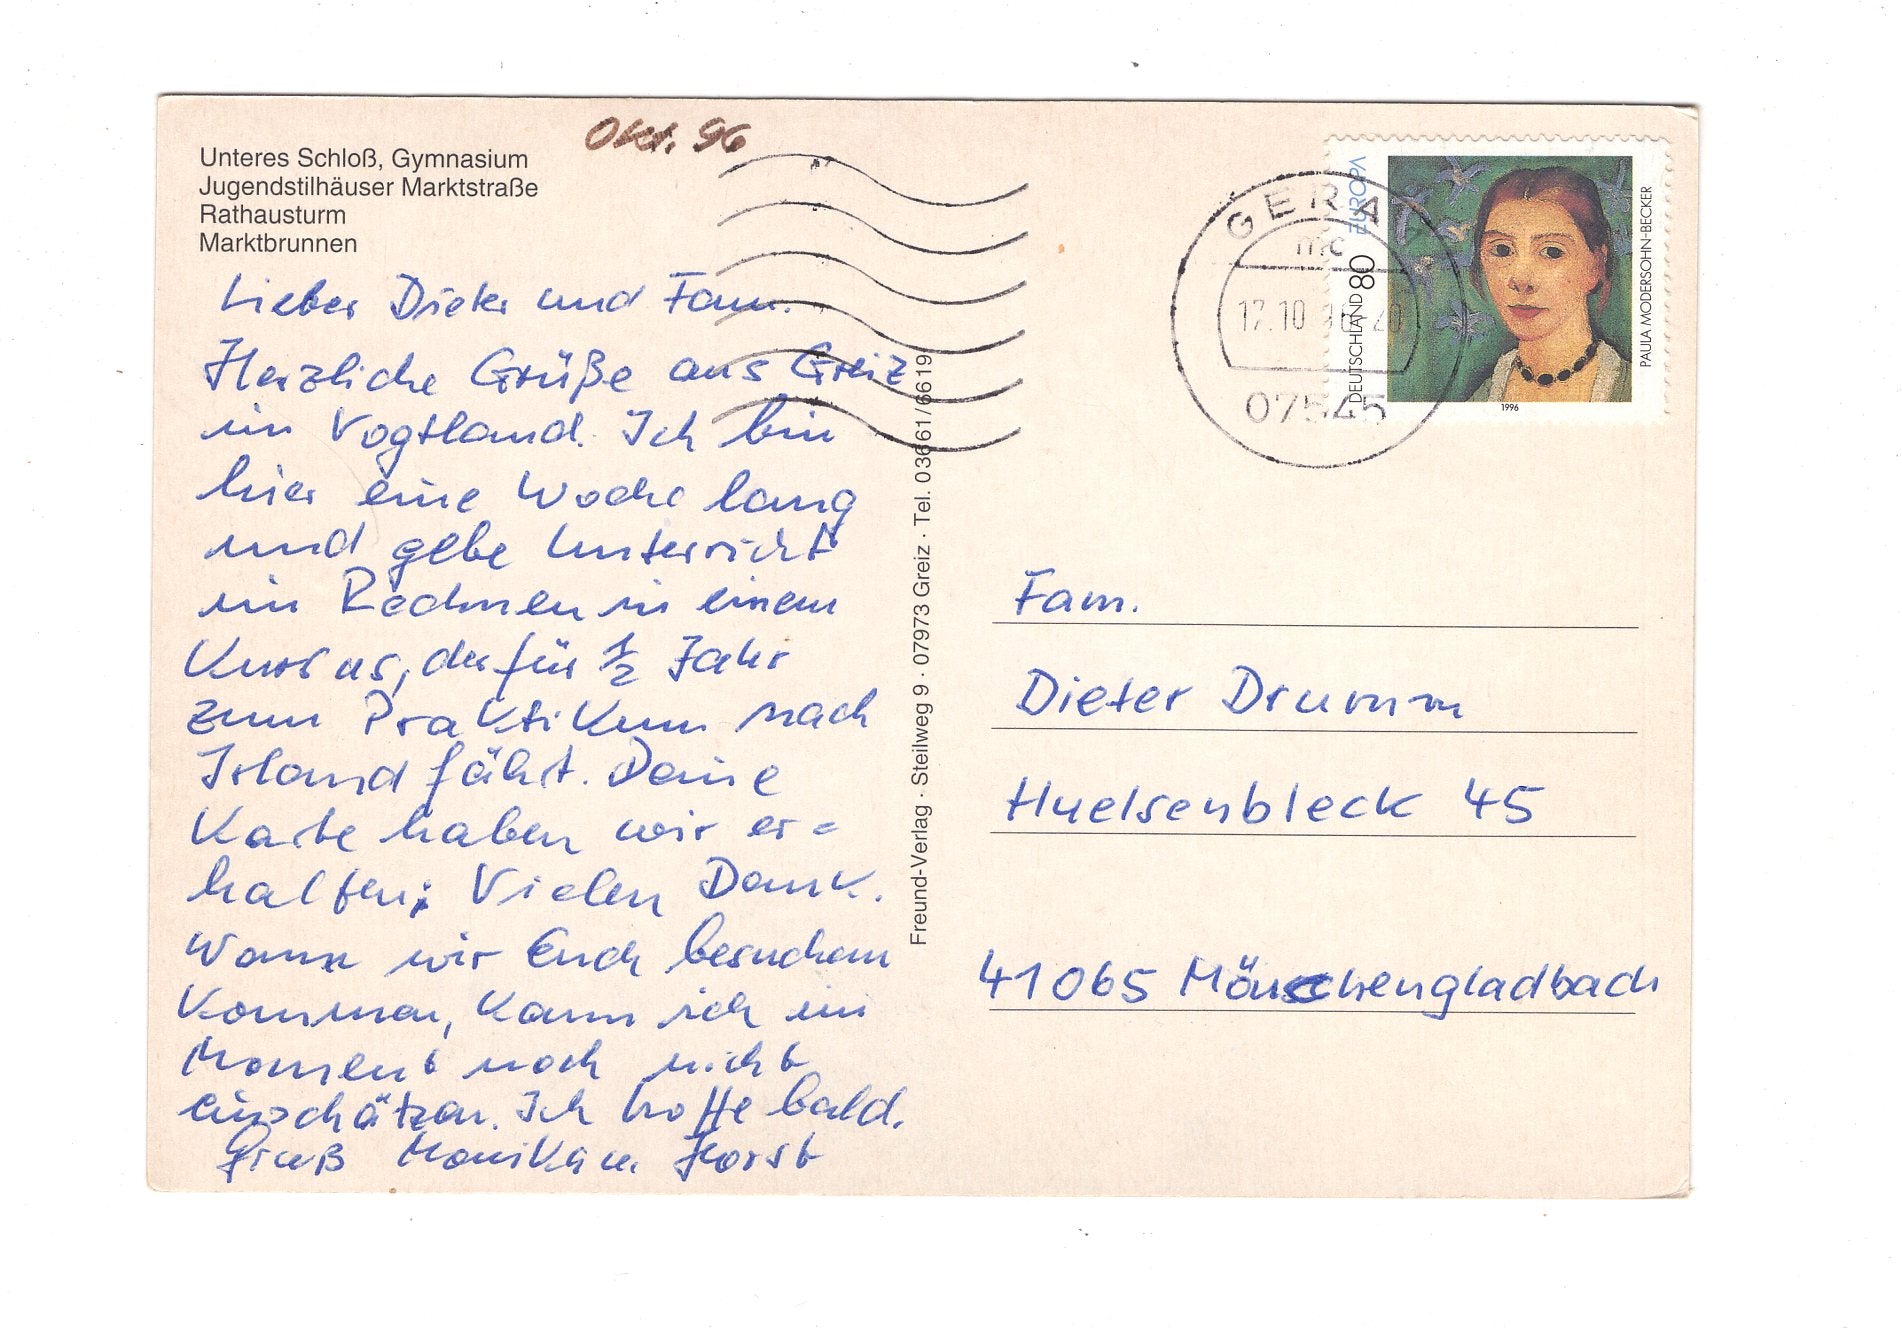 Okt. 96
Unteres Schloß, Gymnasium
Jugendstilhäuser Marktstraße
Rathausturm
Marktbrunnen
Lieber Dieter und Fam.
Herzliche Grüße aus Greiz
im Vogtland. Ich bin
hier eine Woche lang
und gebe Unterricht
im Rechnen in einem
Kursus, der für 1/2 Jahr
zum Praktikum nach
Irland fährt. Deine
Karte haben wir er=
halten; Vielen Dank.
Wann wir Euch besuchen
kommen, kann ich im
Moment noch nicht
einschätzen. Ich hoffe bald.
Gruß Monika u. Horst
Freund-Verlag · Steilweg 9 · 07973 Greiz · Tel. 03661/6619
GERA
mc
17.10.96-20
07545
EUROPA
DEUTSCHLAND 80
PAULA MODERSOHN-BECKER
1996
Fam.
Dieter Drumm
Huelsenbleck 45
41065 Mönchengladbach